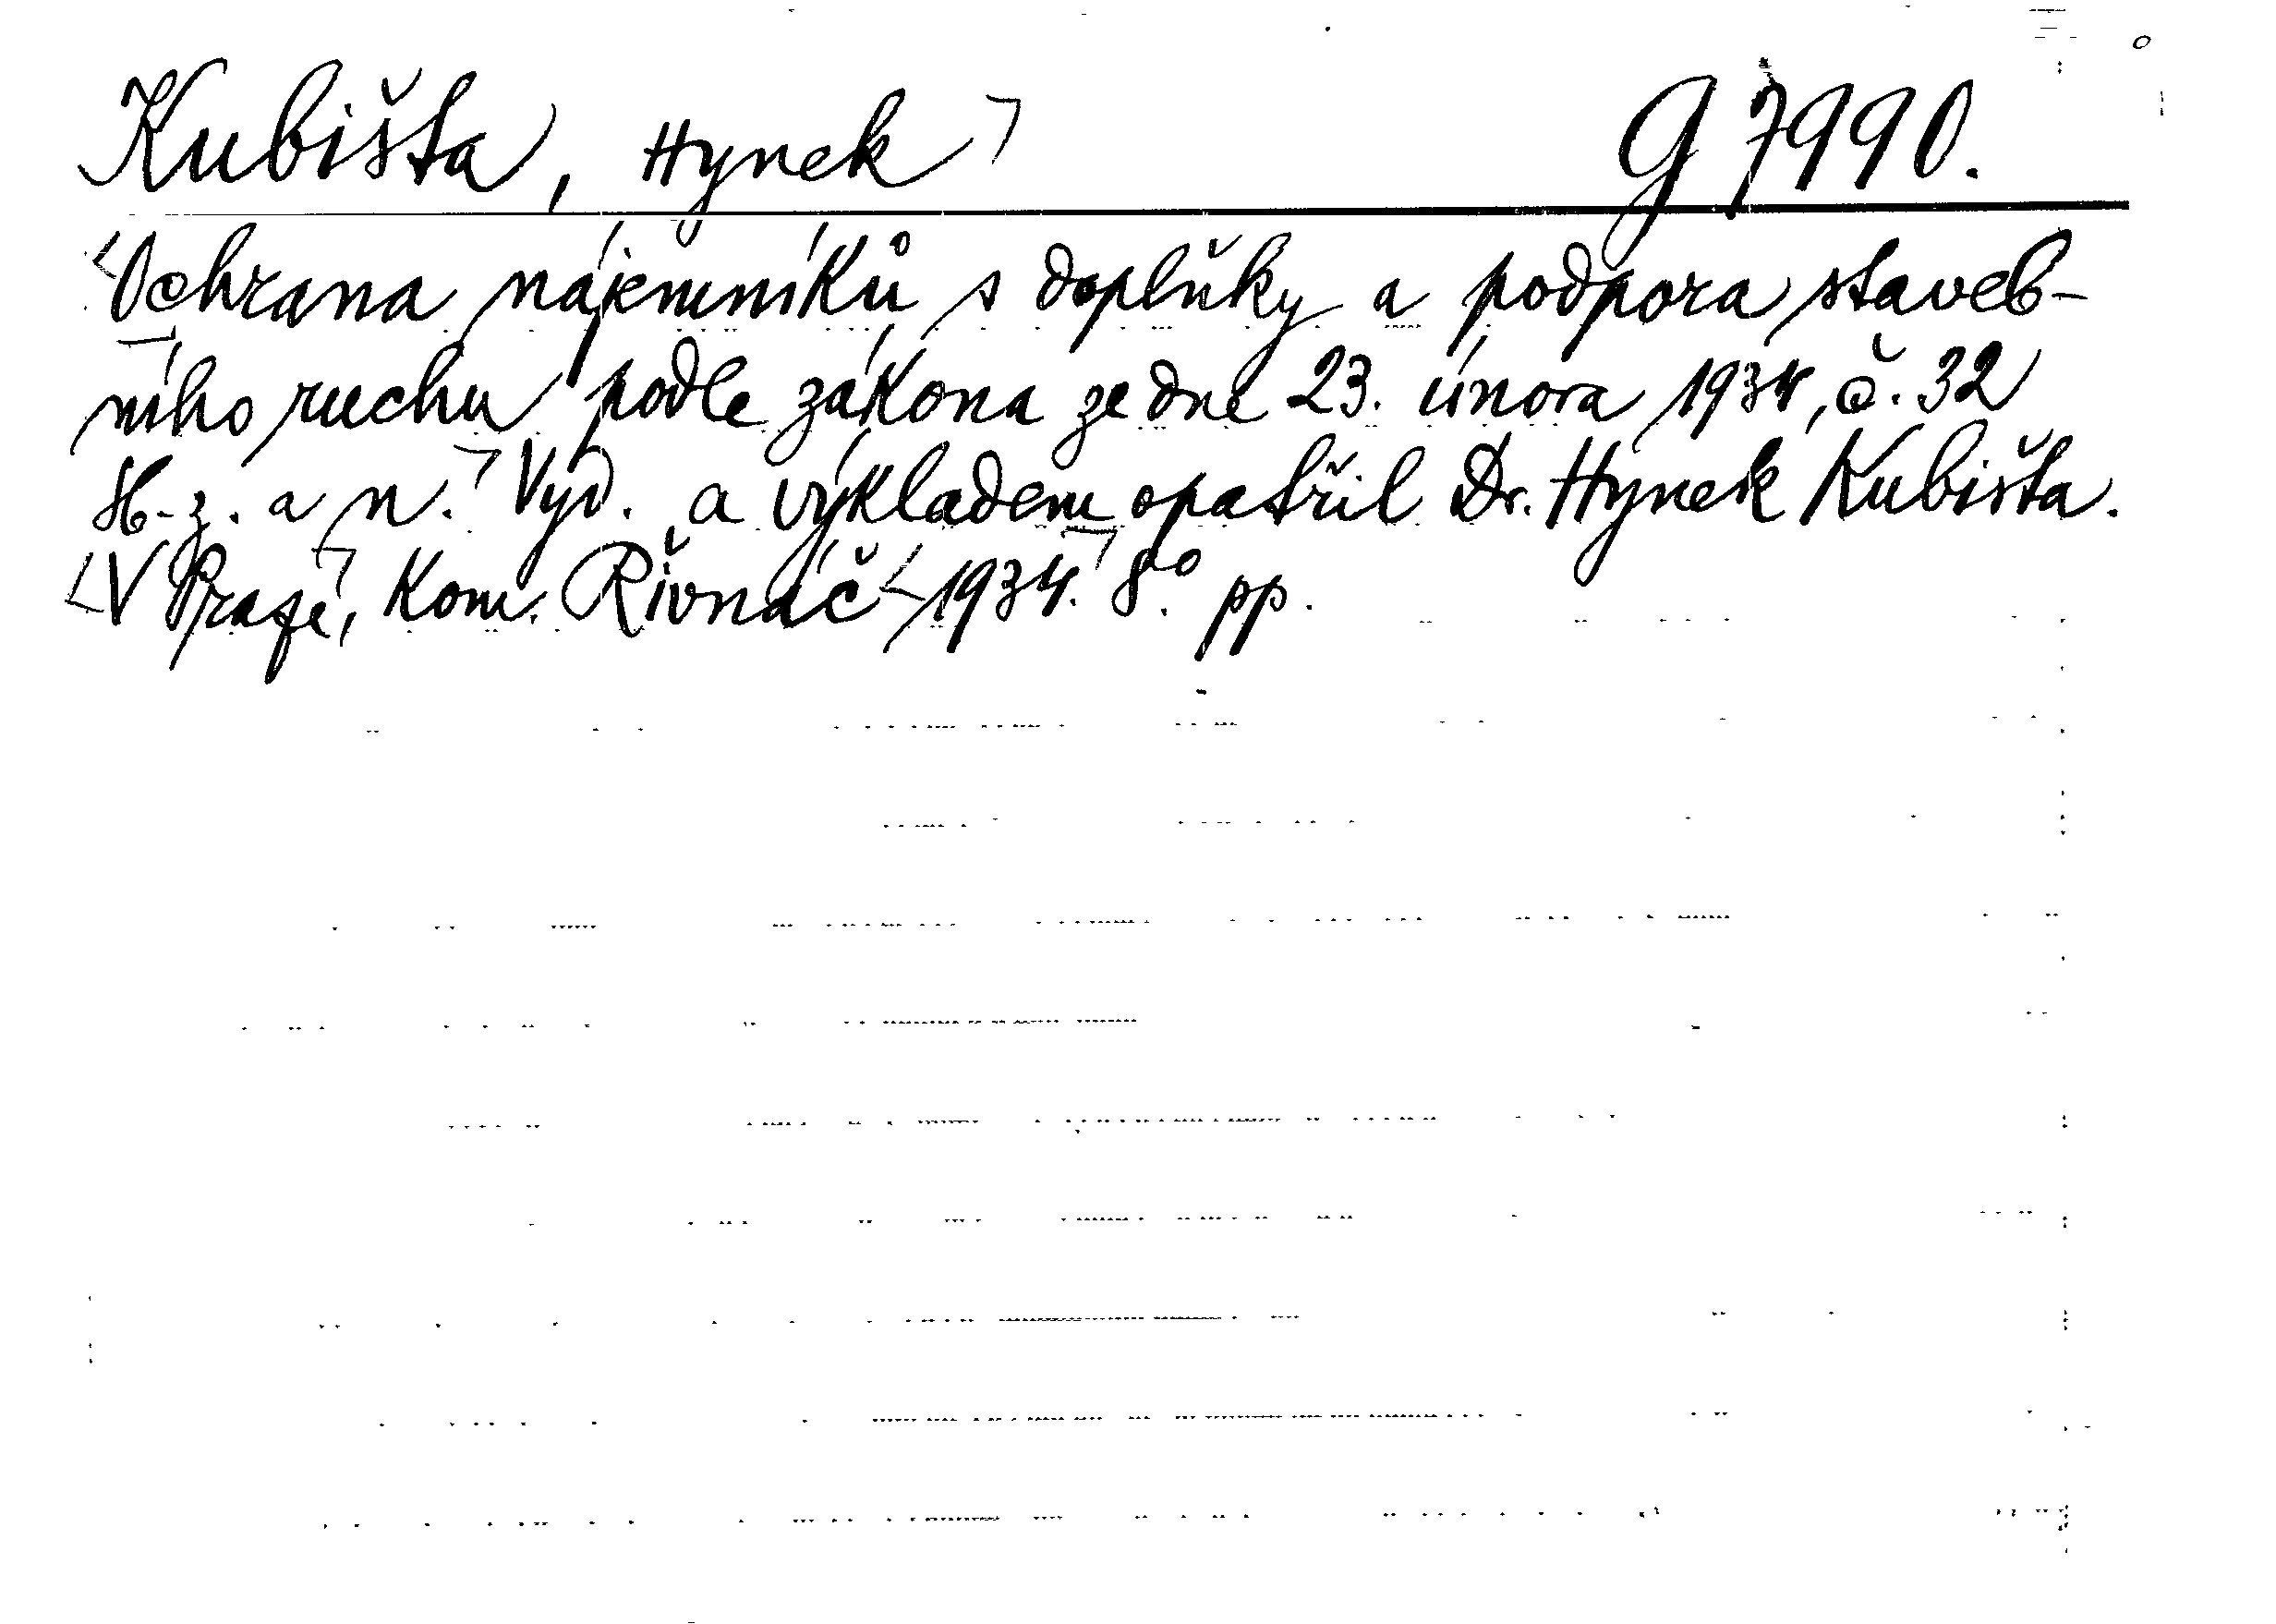 Kubišta, Hynek G 7990.
Ochrana nájemníků s doplňky a podpora staveb-
ního ruchu podle zákona ze dne 23. února 1934, č. 32
Sb. z. a n. Vyd. a výkladem opatřil Dr. Hynek Kubišta.
V Praze, Kom. Řivnáč 1934. 8° pp.